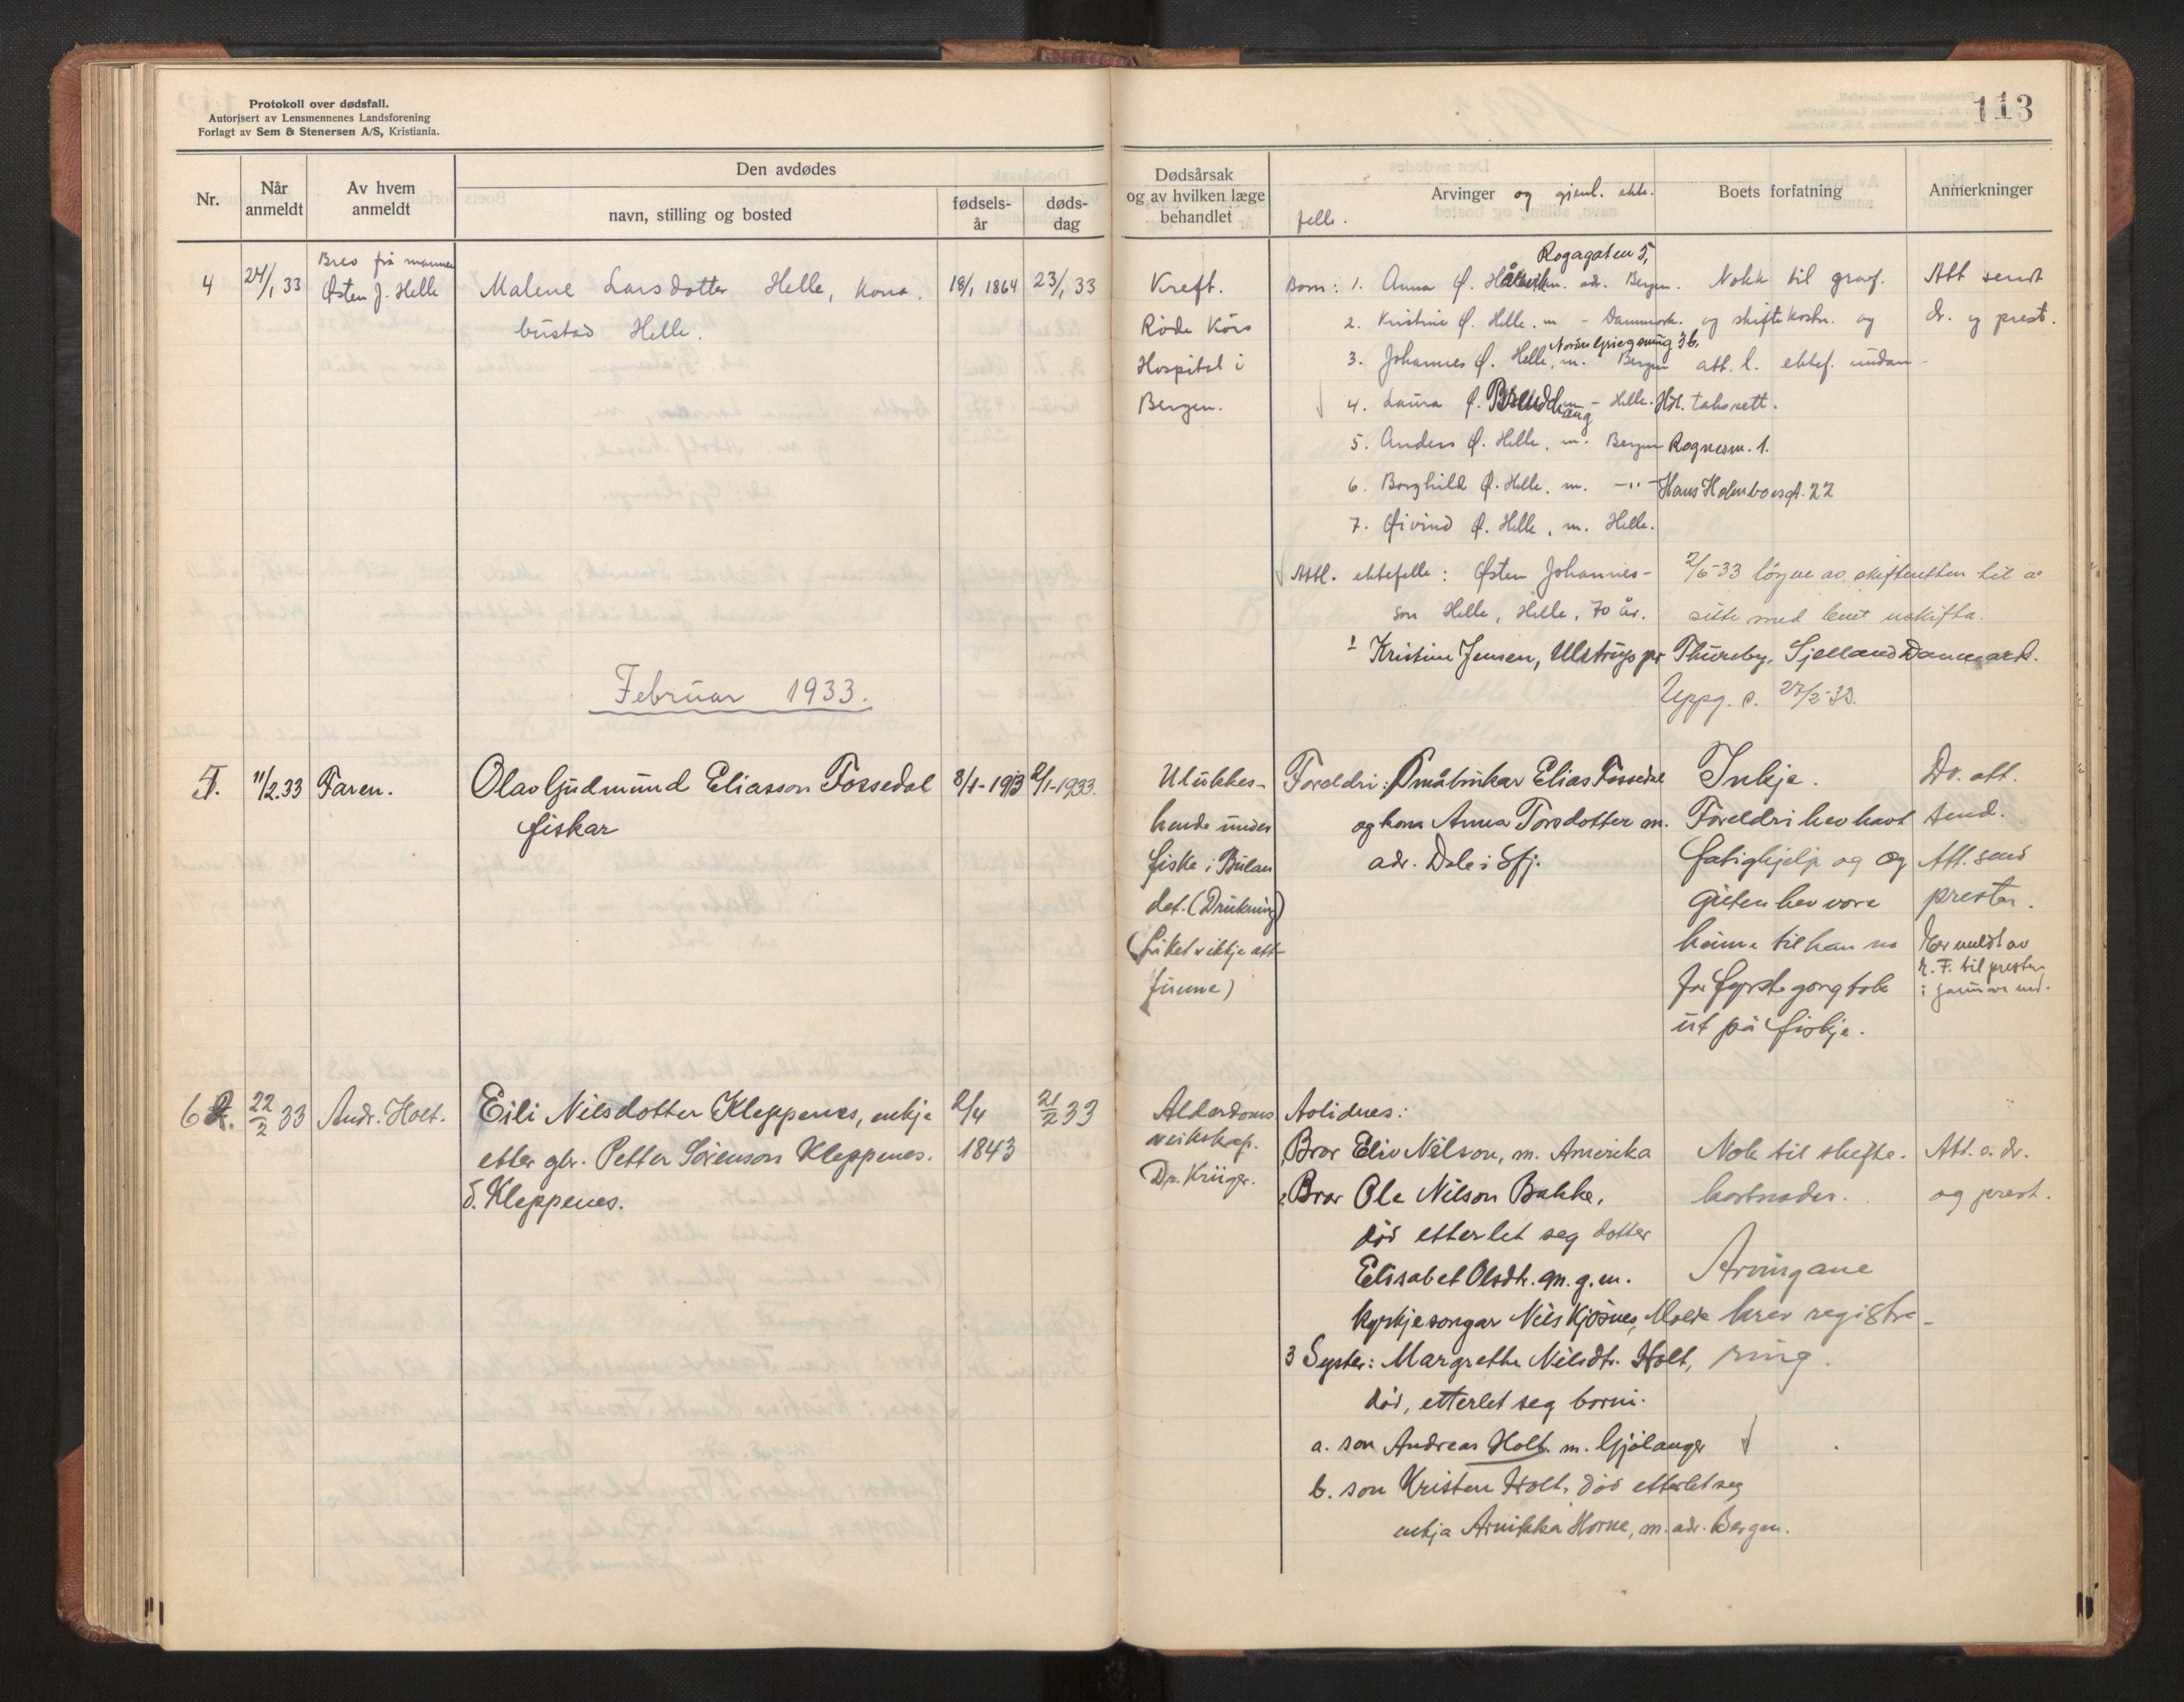 Protokoll over dødsfall.
Autorisert av Lensmennenes Landsforening
Forlagt av Sem & Stenersen A/S, Kristiania.
113
Nr.
Når anmeldt
Av hvem anmeldt
Den avdødes
navn, stilling og bosted
fødsels-år
døds-dag
Dødsårsak og av hvilken læge behandlet
Arvinger og gjenl. ekte-
felle.
Boets forfatning
Anmerkninger
4
24/1 33
Brev frå mannen
Østen J. Helle
Malene Larsdotter Helle, kona.
bustad Helle.
18/1 1864
23/1 33
Kreft.
Røde Kors
Hospital i
Bergen.
Rogagaten 5,
Born: 1. Anna Ø. m. adr. Bergen.
2. Kristine Ø. Helle. m - Danmark.
3. Johannes Ø. Helle, m. Bergen
4. Laura Ø. m - Helle.
5. Anders Ø. Helle, m. Bergen Rognesm. 1.
6. Borghild Ø. Helle. m. -"- Hans Holmboesgt. 22
7. Øivind Ø. Helle, m. Helle.
Attl. ektefelle: Østen Johannes-
son Helle, Helle, 70 år.
Kristine Jensen, Ulstrup pr Thureby, Sjelland Danmark.
Uppg. d. 27/2-33.
Nokk til gravf.
og skiftekostn. og
att. l. ektef. undan-
takorett.
2/6-33 løyve av skifteretten til å
sitte med buet uskifta.
Att sendt
dr. og prest.
Februar 1933.
5.
11/2.33
Faren.
Olav Gudmund Eliasson Fossedal
fiskar
8/1-1913
2/1-1933.
Ulukkes-
hende under
fiske i Bulan
det. (Drukning)
(Liket ikkje att-
funne)
Foreldri: Småbrukar Elias Fossedal
og kona Anna Torsdotter m.
adr. Dale i Sfj.
Inkje.
Foreldri hev havt
fatighjelp og og
guten hev vore
heime til han no
for fyrste gong tok
ut på fiskje.
Do. att.
send.
Att. send
presten.
Er meldt av
til presten
i januar md.
6
22/2 33
Andr. Holt.
Eili Nilsdotter Kleppenes, enkje
etter gbr. Petter Sørenson Kleppenes.
d. Kleppenes.
2/4
1843
21/2 33
Alderdoms
veikskap.
Dr. Krüger.
Avlidnes:
Bror Eliv Nilson, m. Amerika
2. Bror Ole Nilson Bakke,
død etterlet seg dotter
Elisabet Olsdtr. m. g.m.
kyrkjesongar Nils Kjøsnes, Molde
3 Syster: Margrethe Nilsdtr. Holt,
død, etterlet seg born:
a. son Andreas Holt. m. Gjølanger
b. son Kristen Holt, død etterlet seg
enkja Arnikka Horne, m. adr. Bergen.
Nok til skifte-
kostnader.
Arvingane
krev registre-
ring.
Att. a. dr.
og prest.